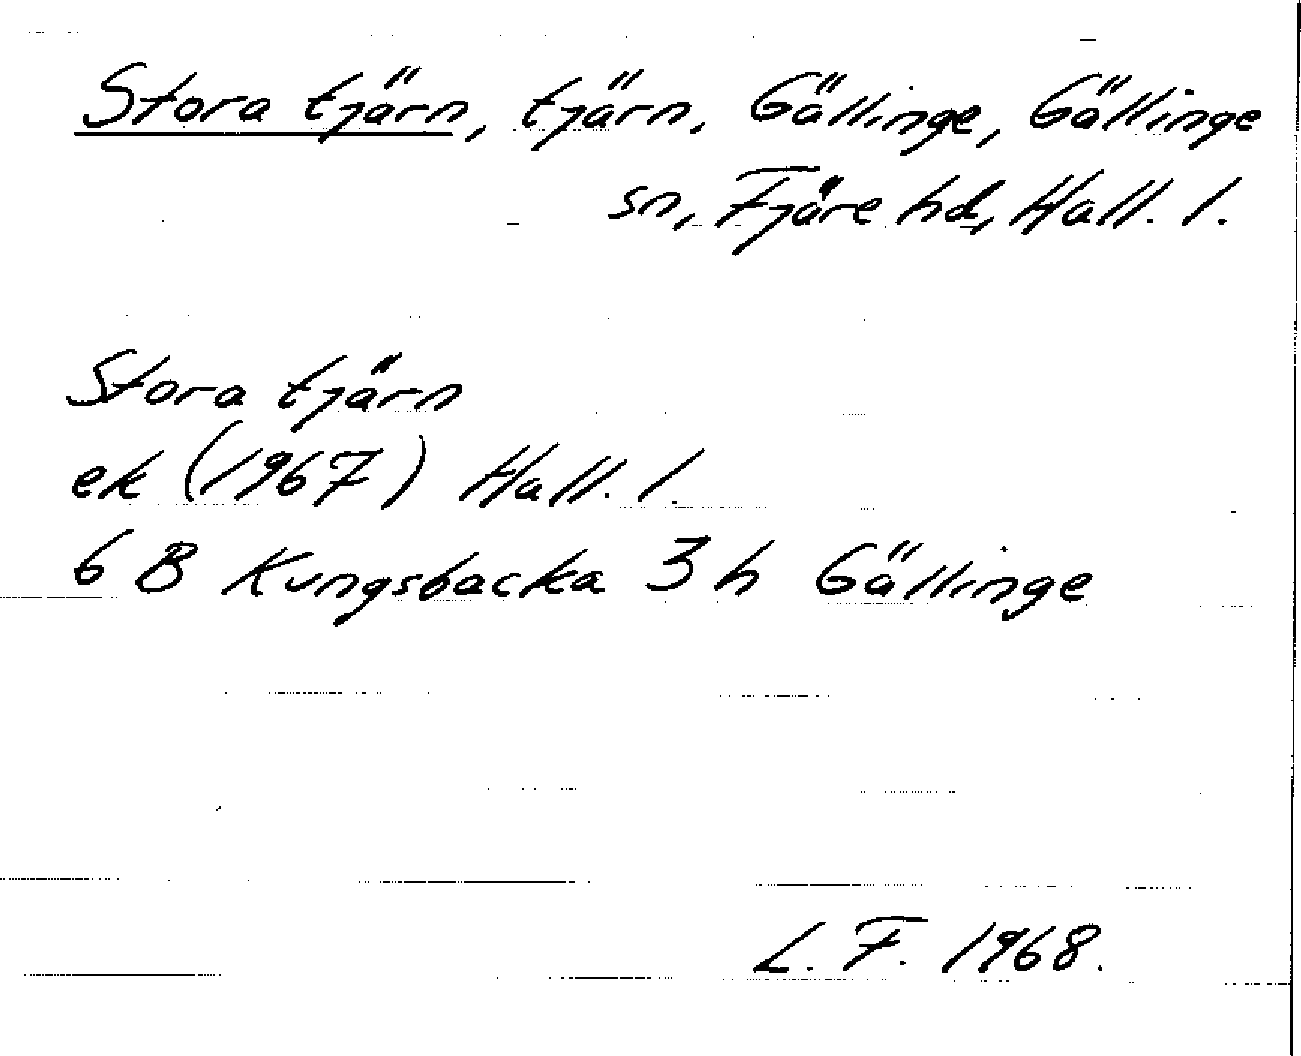 Stora tjärn, tjärn, Gällinge, Gällinge
sn, Fjäre hd, Hall. l.
Stora tjärn
ek (1967) Hall. l.
6 B Kungsbacka 3 h Gällinge
L. F. 1968.